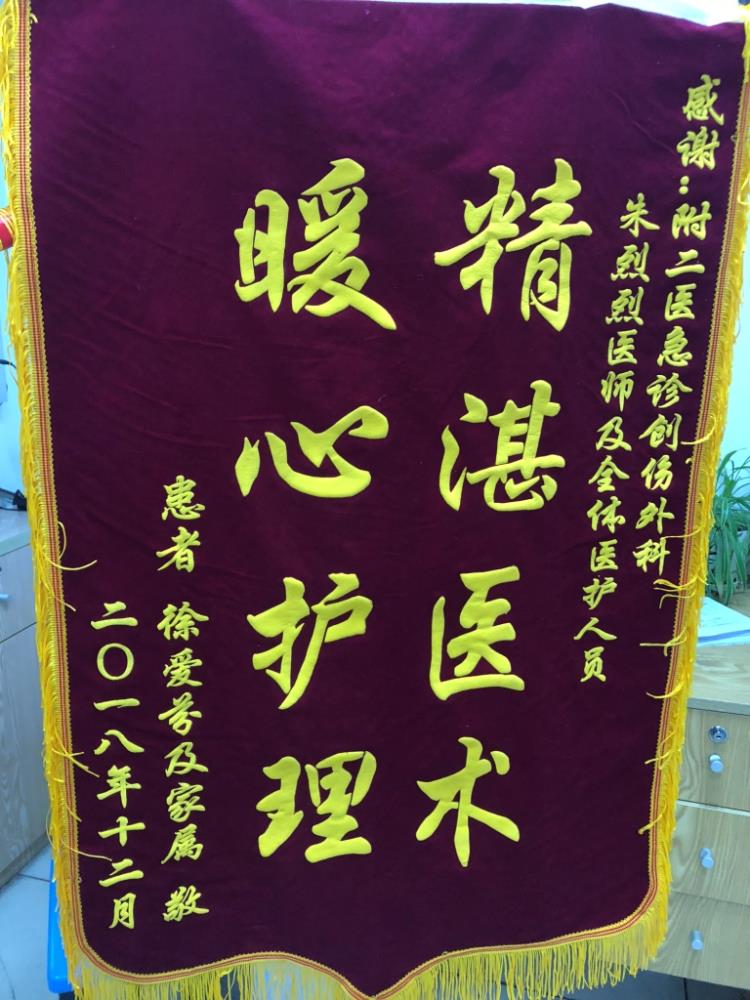 感谢:附二医急诊创伤外科
朱烈烈医师及全体医护人员
精湛医术
暖心护理
患者 徐爱芬及家属 敬
二〇一八年十二月